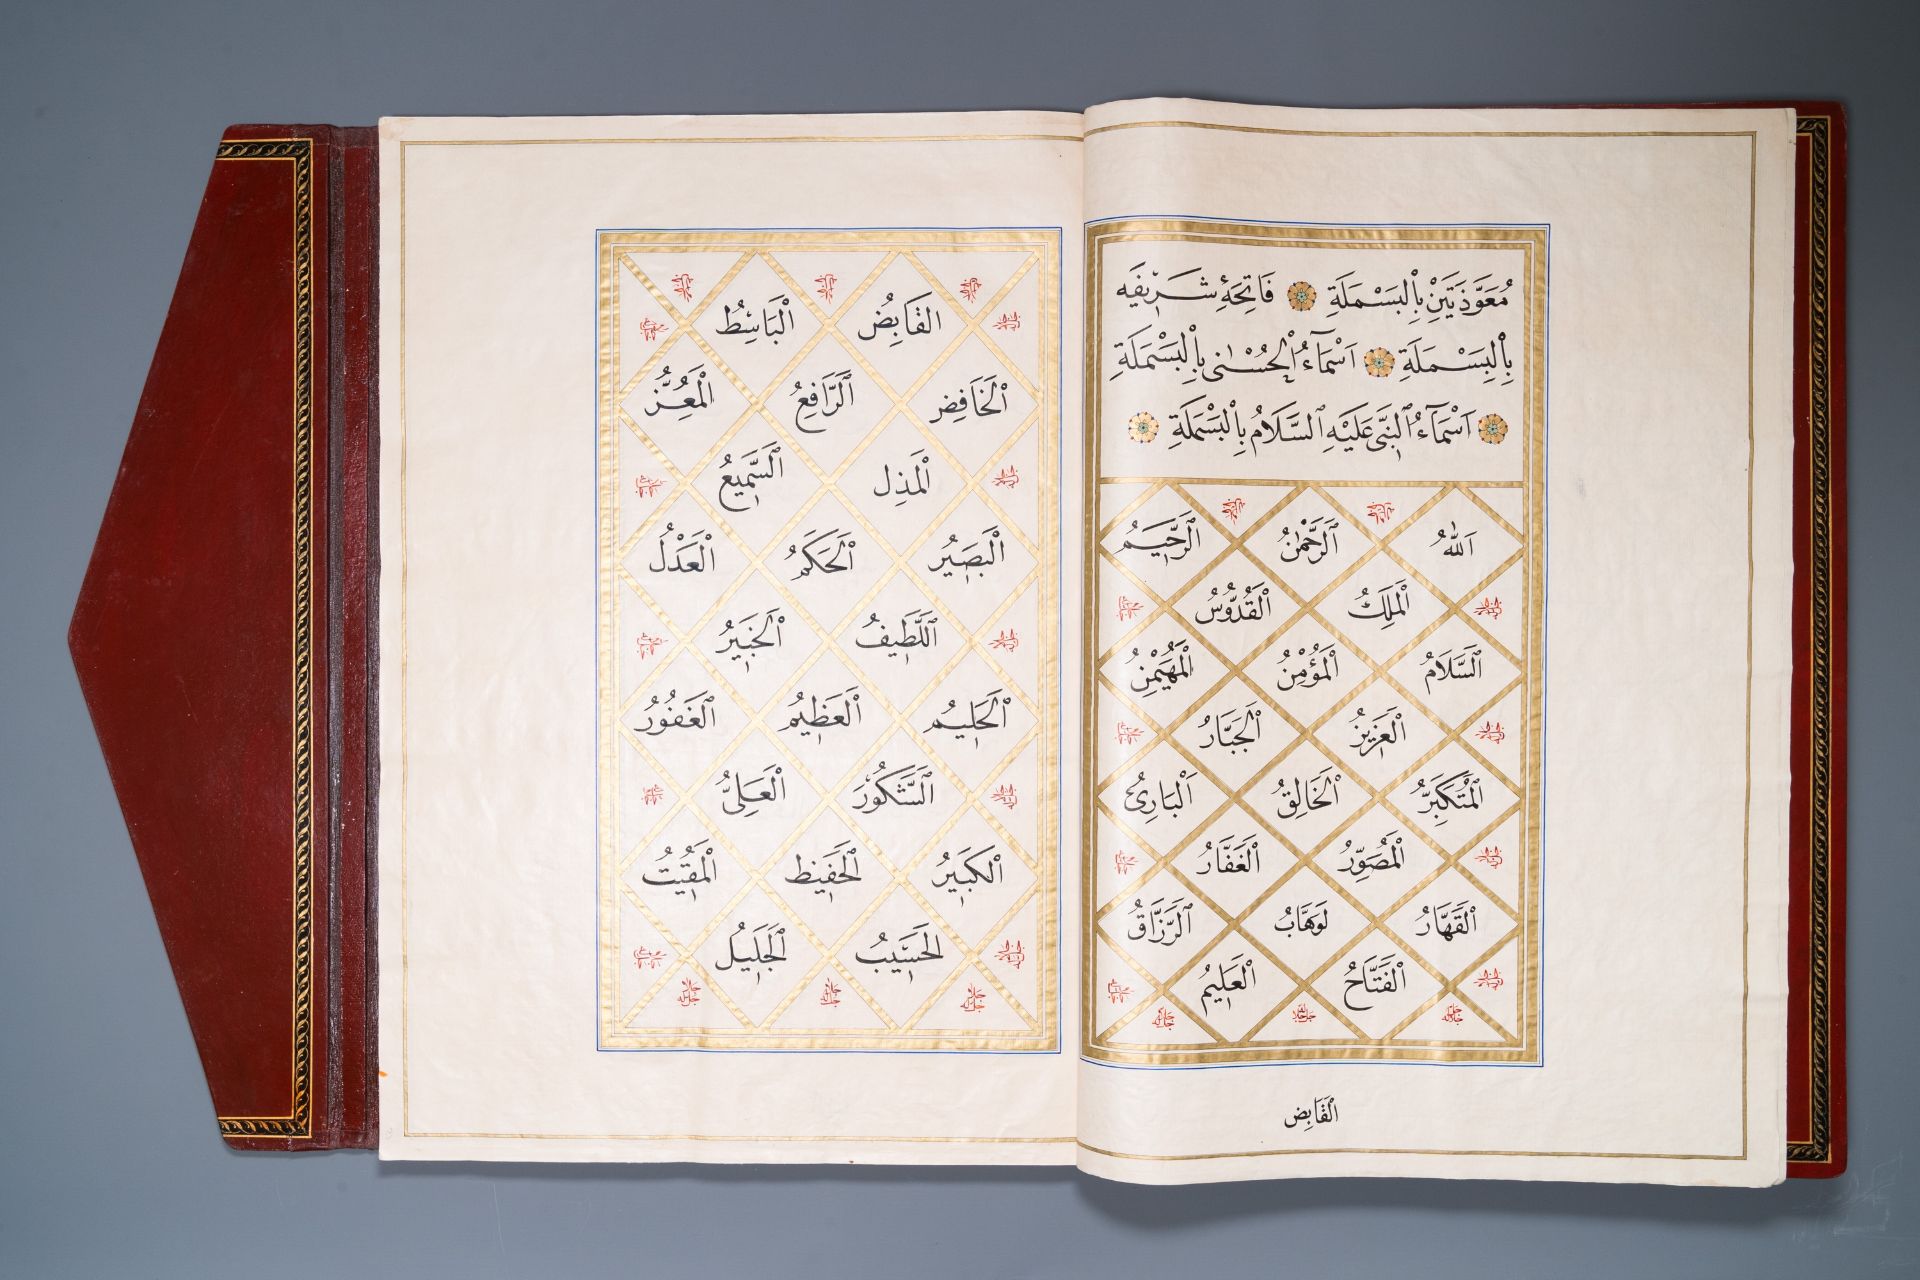 مُعَوَّذَتَيْنِ بِالْبَسْمَلَةِ فَاتِحَۀِ شَرِيفَه
بِالْبَسْمَلَةِ اَسْمَاءُ الْحُسْنٰى بِالْبَسْمَلَةِ
اَسْمَاءُ النَّبِىِّ عَلَيْهِ السَّلَامُ بِالْبَسْمَلَةِ
اَللهُ اَلرَّحْمٰنُ اَلرَّحِيمُ
اَلْمَلِكُ اَلْقُدُّوسُ
اَلسَّلَامُ اَلْمُؤْمِنُ اَلْمُهَيْمِنُ
اَلْعَزِيزُ اَلْجَبَّارُ
الْمُتَكَبِّرُ اَلْخَالِقُ اَلْبَارِئُ
اَلْمُصَوِّرُ اَلْغَفَّارُ
اَلْقَهَّارُ لوَهَّابُ اَلرَّزَّاقُ
اَلْفَتَّاحُ اَلْعَلِيمُ
الْقَابِضُ
الْقَابِضُ الْبَاسِطُ
اَلْخَافِضُ اَلرَّافِعُ الْمُعِزُّ
اَلْمُذِلُّ اَلسَّمِيعُ
الْبَصِيرُ اَلْحَكَمُ الْعَدْلُ
اَللَّطِيفُ اَلْخَبِيرُ
اَلْحَلِيمُ اَلْعَظِيمُ الْغَفُورُ
اَلشَّكُورُ الْعَلِىُّ
الْكَبِيرُ اَلْحَفِيظُ الْمُقِيتُ
الْحَسِيبُ اَلْجَلِيلُ